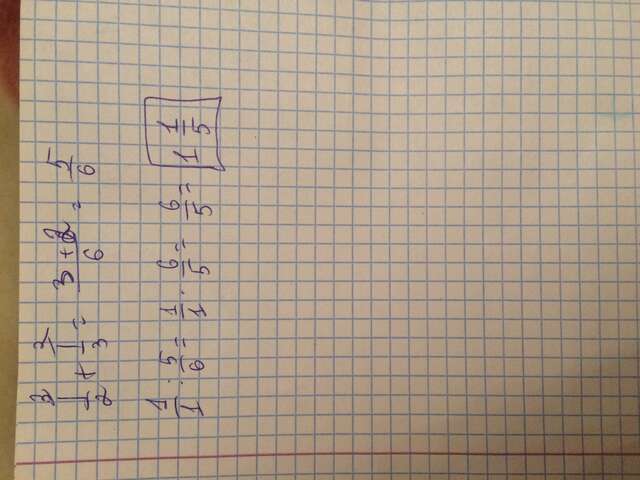 3 1/2 + 2 1/3 = (3+2)/6 = 5/6
1/1 : 5/6 = 1/1 · 6/5 = 6/5 = 1 1/5